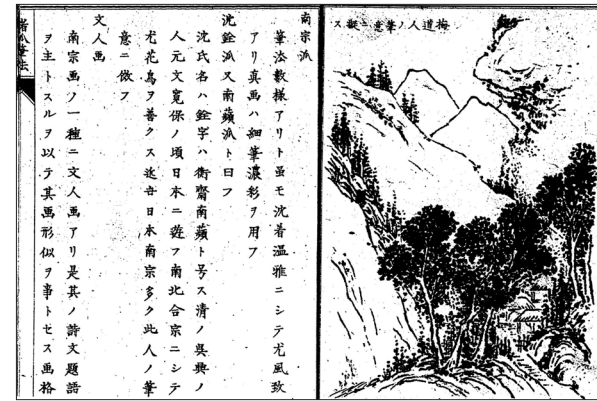 梅道人ノ筆意ニ擬ス
南宗派
筆法数様アリト虽モ沈着温雅ニシテ尤風致
アリ真画ハ細筆濃彩ヲ用フ
沈銓派又南蘋派ト曰フ
沈氏名ハ銓字ハ衡齋南蘋ト号ス清ノ呉興ノ
人元文寛保ノ頃日本ニ遊フ南北合宗ニシテ
尤花鳥ヲ善クス近世日本南宗多ク此人ノ筆
意ニ倣フ
文人画
南宗画ノ一種ニ文人画アリ是其ノ詩文題語
ヲ主トスルヲ以テ其画形似ヲ事トセス画格